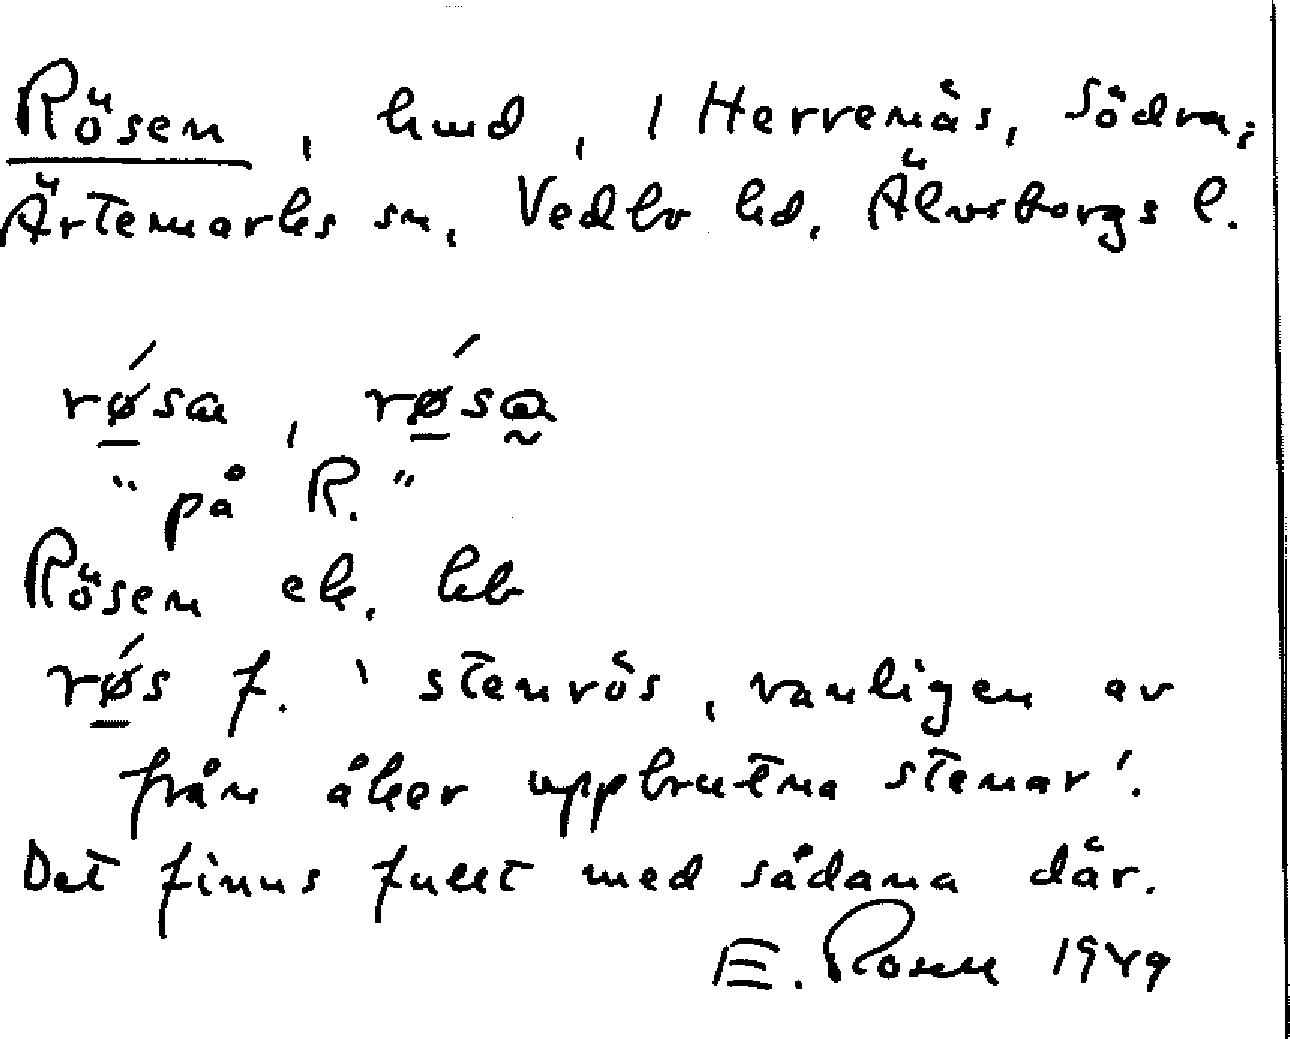 Rösen, hmd, i Herrenäs, Södra;
Ärtemarks sn, Vedbo hd, Älvsborgs l.
røsa, røsa
"på R."
Rösen ek. kb
røs f. 'stenrös, vanligen av
från åker uppbrutna stenar'.
Det finns fullt med sådana där.
E. Rosen 1949